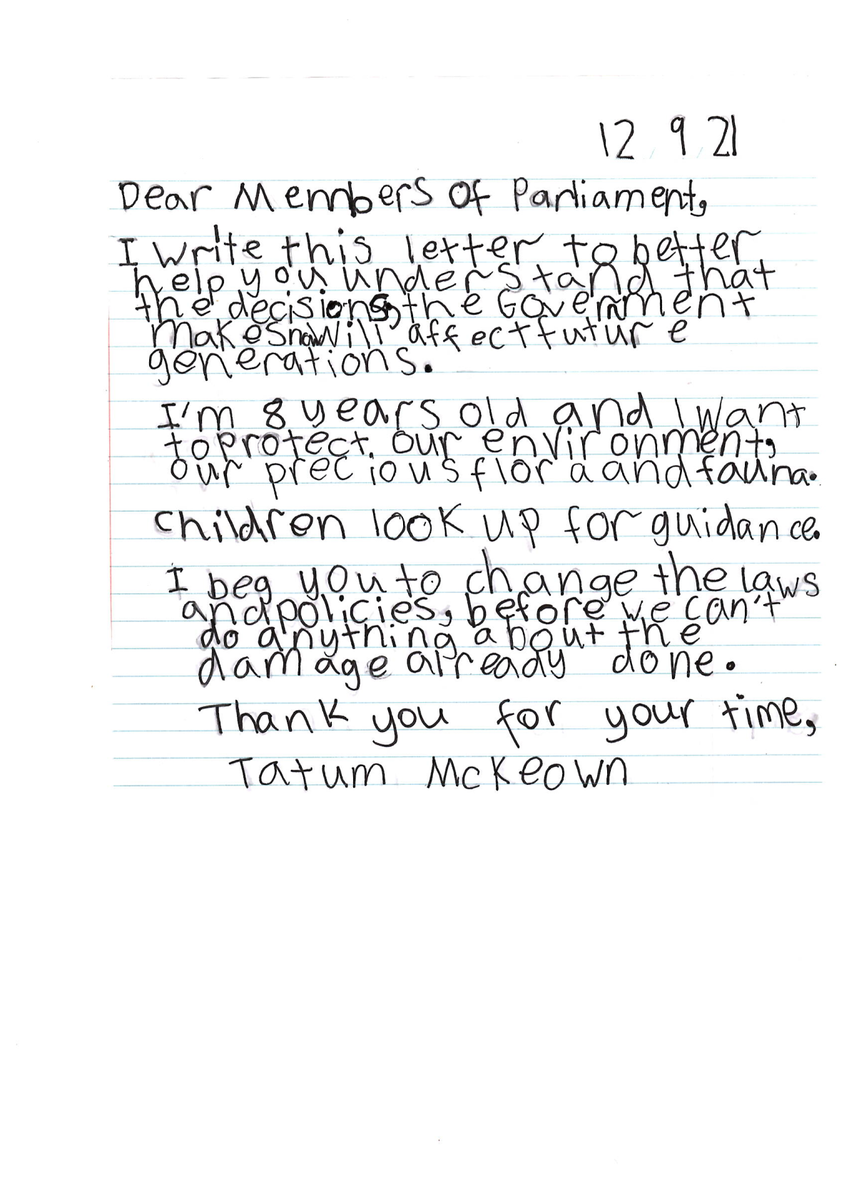 12 9 21
Dear Members of Parliament,
I write this letter to better
help you understand that
the decisions, the Government
makes now will affect future
generations.
I'm 8 years old and I want
to protect our environment,
our precious flora and fauna.
Children look up for guidance.
I beg you to change the laws
and policies, before we can't
do anything about the
damage already done.
Thank you for your time,
Tatum McKeown